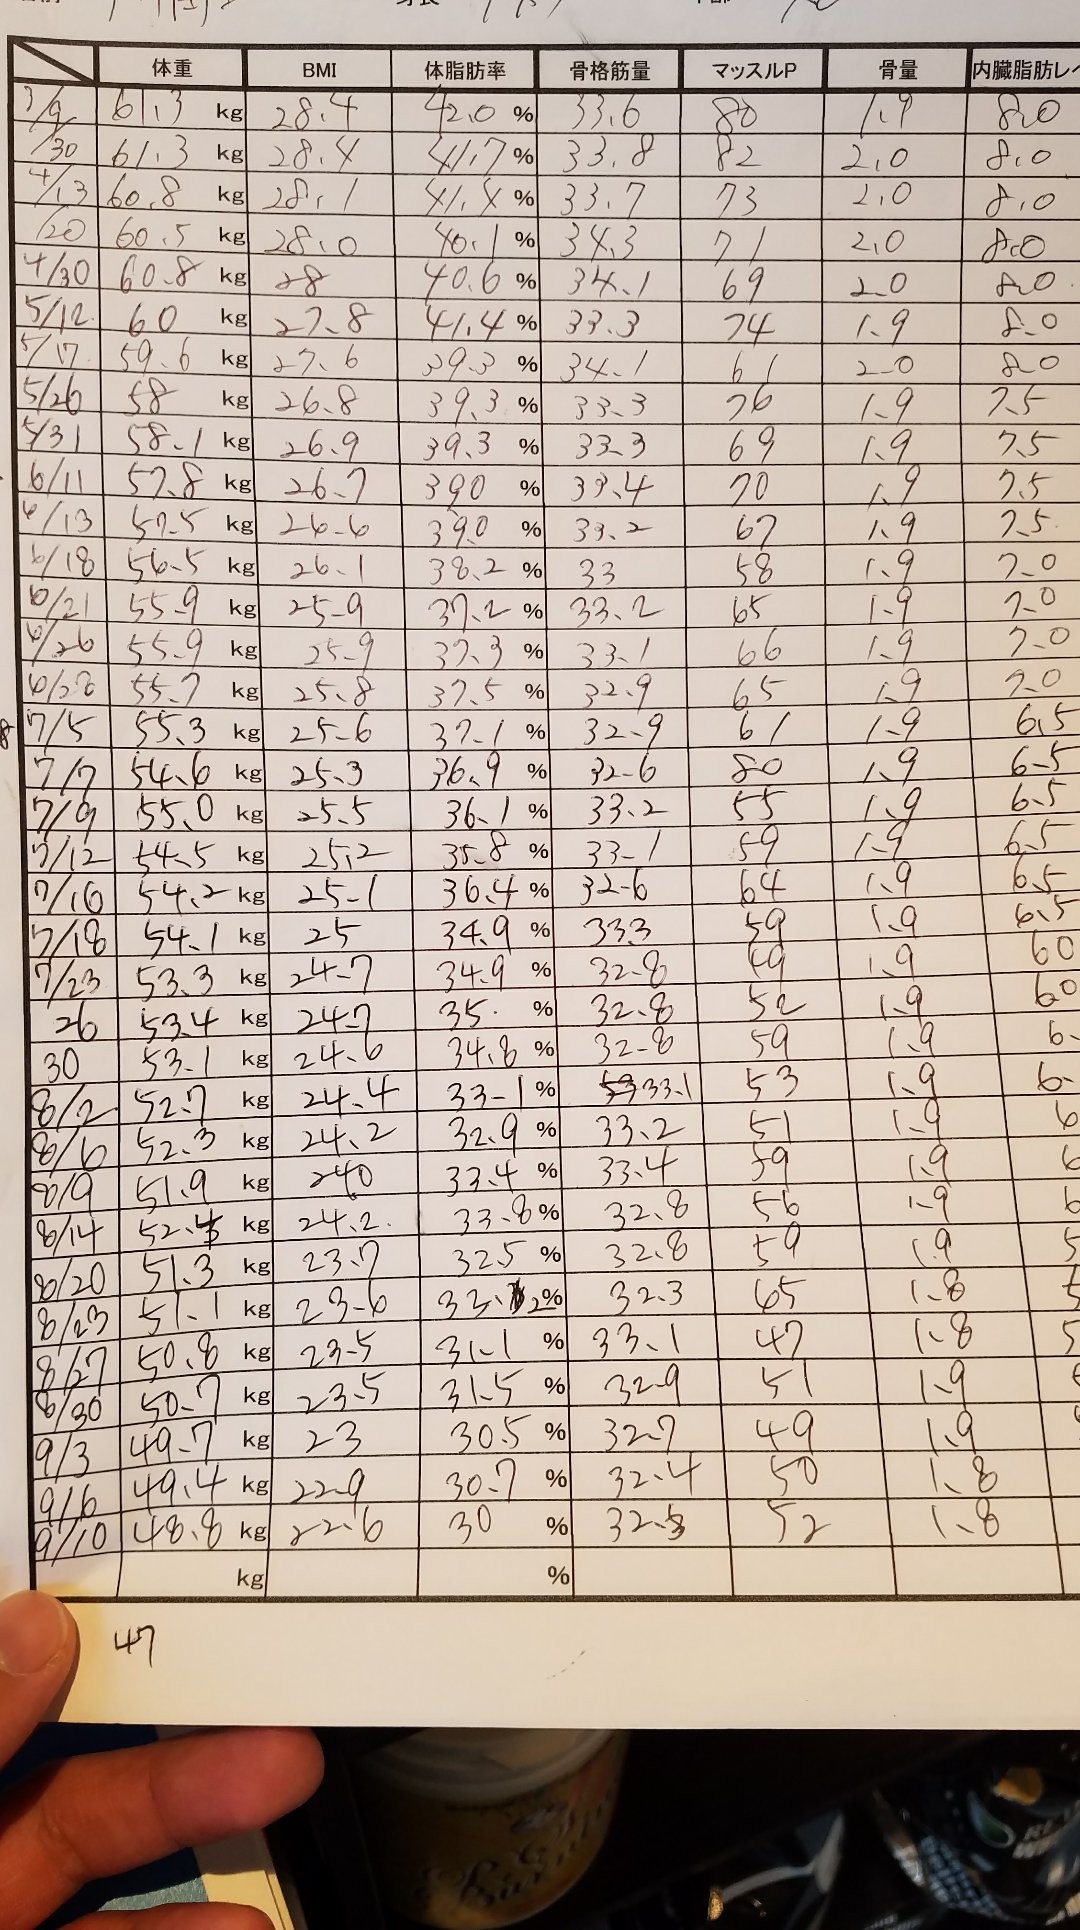 体重 BMI 体脂肪率 骨格筋量 マッスルP 骨量 内臓脂肪レベ
61.3 kg 28.4 42.0 % 33.6 80 1.9 8.0
/30 61.3 kg 28.4 41.7 % 33.8 82 2.0 8.0
4/13 60.8 kg 28.1 41.4 % 33.7 73 2.0 8.0
/20 60.5 kg 28.0 40.1 % 34.3 71 2.0 8.0
4/30 60.8 kg 28 40.6 % 34.1 69 2.0 8.0
5/12 60 kg 27.8 41.4 % 33.3 74 1.9 8.0
5/17 59.6 kg 27.6 39.3 % 34.1 61 2.0 8.0
5/26 58 kg 26.8 39.3 % 33.3 76 1.9 7.5
5/31 58.1 kg 26.9 39.3 % 33.3 69 1.9 7.5
6/11 57.8 kg 26.7 390 % 33.4 70 1.9 7.5
6/13 57.5 kg 26.6 39.0 % 33.2 67 1.9 7.5
6/18 56.5 kg 26.1 38.2 % 33 58 1.9 7.0
6/21 55.9 kg 25.9 37.2 % 33.2 65 1.9 7.0
6/26 55.9 kg 25.9 37.3 % 33.1 66 1.9 7.0
6/28 55.7 kg 25.8 37.5 % 32.9 65 1.9 7.0
8 7/5 55.3 kg 25.6 37.1 % 32.9 61 1.9 6.5
7/7 54.6 kg 25.3 36.9 % 32.6 80 1.9 6.5
7/9 55.0 kg 25.5 36.1 % 33.2 55 1.9 6.5
7/12 54.5 kg 25.2 35.8 % 33.1 59 1.9 6.5
7/16 54.2 kg 25.1 36.4 % 32.6 64 1.9 6.5
7/18 54.1 kg 25 34.9 % 33.3 59 1.9 6.5
7/23 53.3 kg 24.7 34.9 % 32.8 1.9 60
26 53.4 kg 24.7 35. % 32.8 52 1.9 60
30 53.1 kg 24.6 34.8 % 32.8 59 1.9 6.
8/2 52.7 kg 24.4 33.1 % 33.1 53 1.9 6.
8/6 52.3 kg 24.2 32.9 % 33.2 51 1.9 6
8/9 51.9 kg 24.0 33.4 % 33.4 59 1.9 6
8/14 52.4 kg 24.2. 33.8 % 32.8 56 1.9 6
8/20 51.3 kg 23.7 32.5 % 32.8 59 1.9 5
8/23 51.1 kg 23.6 33.2 % 32.3 65 1.8 5
8/27 50.8 kg 23.5 31.1 % 33.1 47 1.8 5
8/30 50.7 kg 23.5 31.5 % 32.9 51 1.9
9/3 49.7 kg 23 30.5 % 32.7 49 1.9
9/6 49.4 kg 22.9 30.7 % 32.4 50 1.8
9/10 48.8 kg 22.6 30 % 32.5 52 1.8
kg %
47